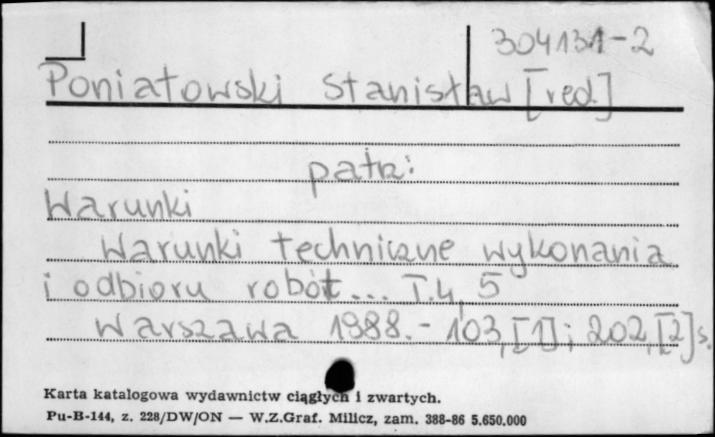 304131-2
Poniatowski Stanisław [red.]
patrz:
Warunki
Warunki techniczne wykonania
i odbioru robót... T.4, 5
Warszawa 1988.- 103,[1]; 202,[2]s.
Karta katalogowa wydawnictw ciągłych i zwartych.
Pu-B-144, z. 228/DW/ON — W.Z.Graf. Milicz, zam. 388-86 5.650.000